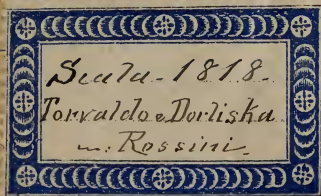 Scala - 1818 -
Torvaldo e Dorliska
m: Rossini.